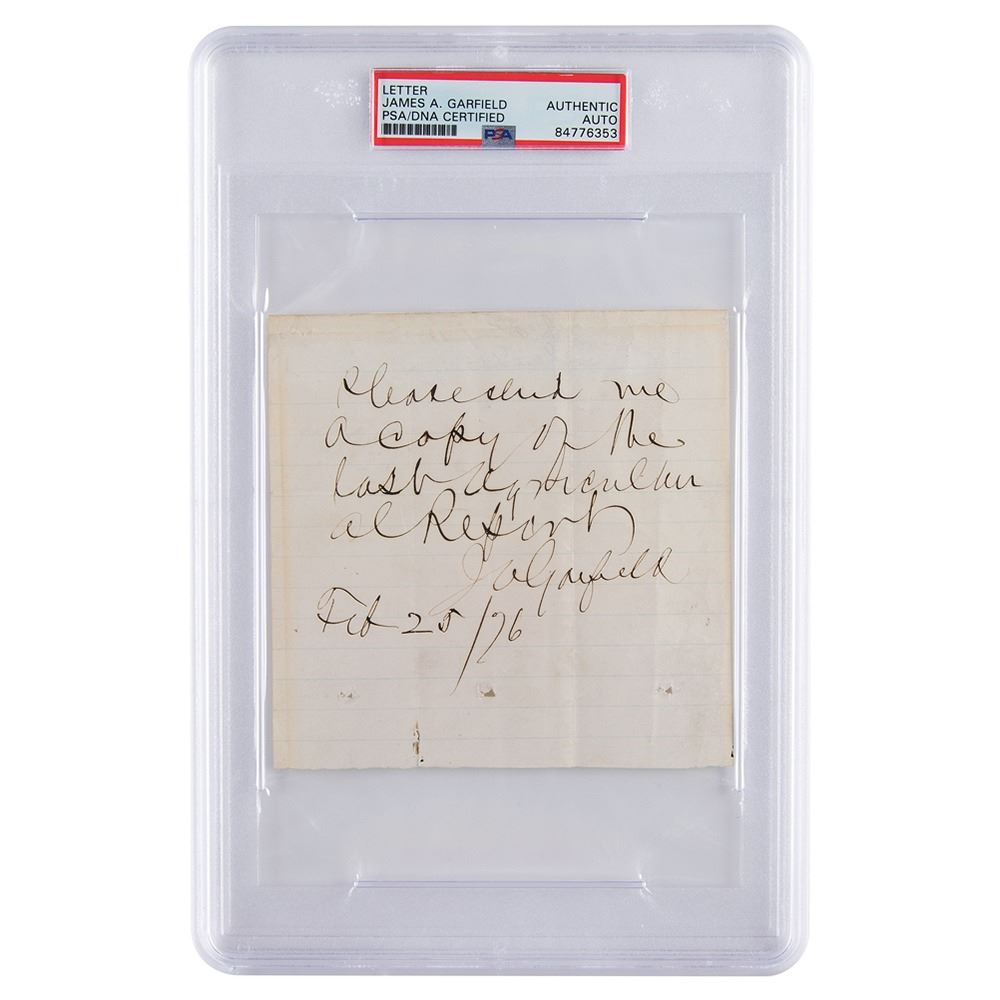 LETTER
JAMES A. GARFIELD
PSA/DNA CERTIFIED
AUTHENTIC
AUTO
84776353
PSA
Please send me
a copy of the
last Agricultur
al Report
J A Garfield
Feb 25/76